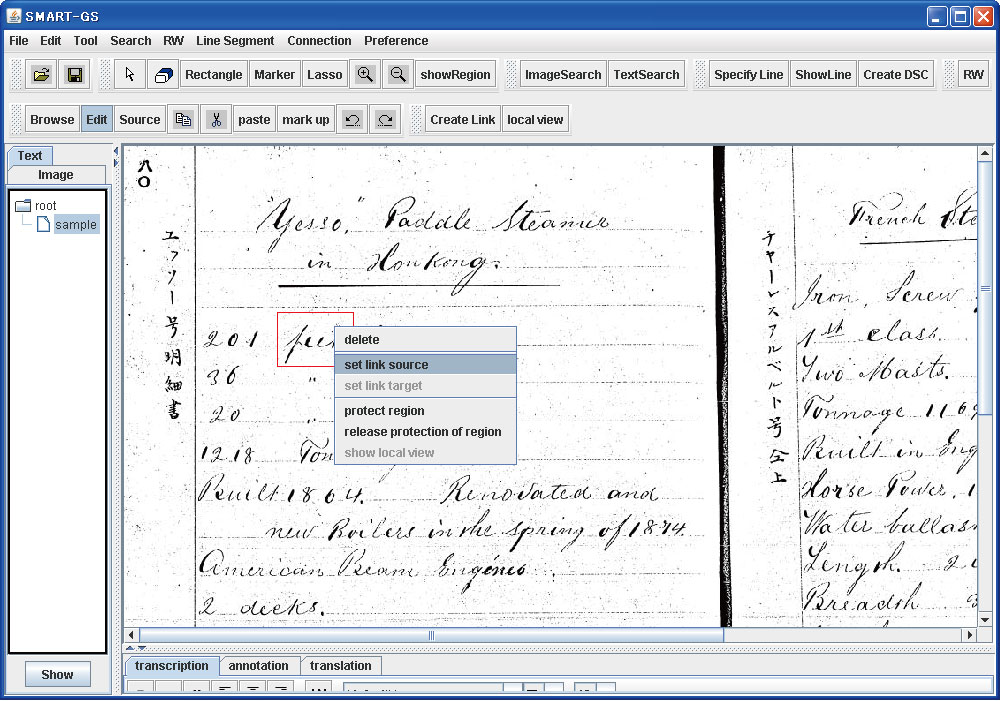 SMART-GS
File Edit Tool Search RW Line Segment Connection Preference
Rectangle Marker Lasso showRegion ImageSearch TextSearch Specify Line ShowLine Create DSC RW
Browse Edit Source paste mark up Create Link local view
Text
Image
root
sample
Show
八〇
エッソー号明細書
"Yesso," Paddle Steamer
in Honkong.
201
36 "
20 "
1218 Ton
Built 1864. Renovated and
new Boilers in the spring of 1874.
American Beam Engines.
2 decks.
delete
set link source
set link target
protect region
release protection of region
show local view
チャーレスアルベルト号仝上
French Ste
Iron, Screw
1st class.
Two Masts.
Tonnage 1109
Built in Eng
Horse Power, 1
Water ballas
Length. 2
Breadth
transcription annotation translation